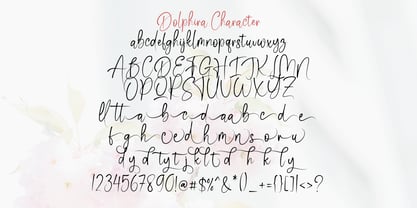 Dolphira Character
abcdefghijklmnopqrstuvwxyz
ABCDEFGHIJKLMN
OPQRSTUVWXYZ
ll tt a b c d a a b c d e
f g h c h m n s o r u
d y d t y t k l t d h k l y
1234567890!@#$%^&*()_-+={}[]<>?